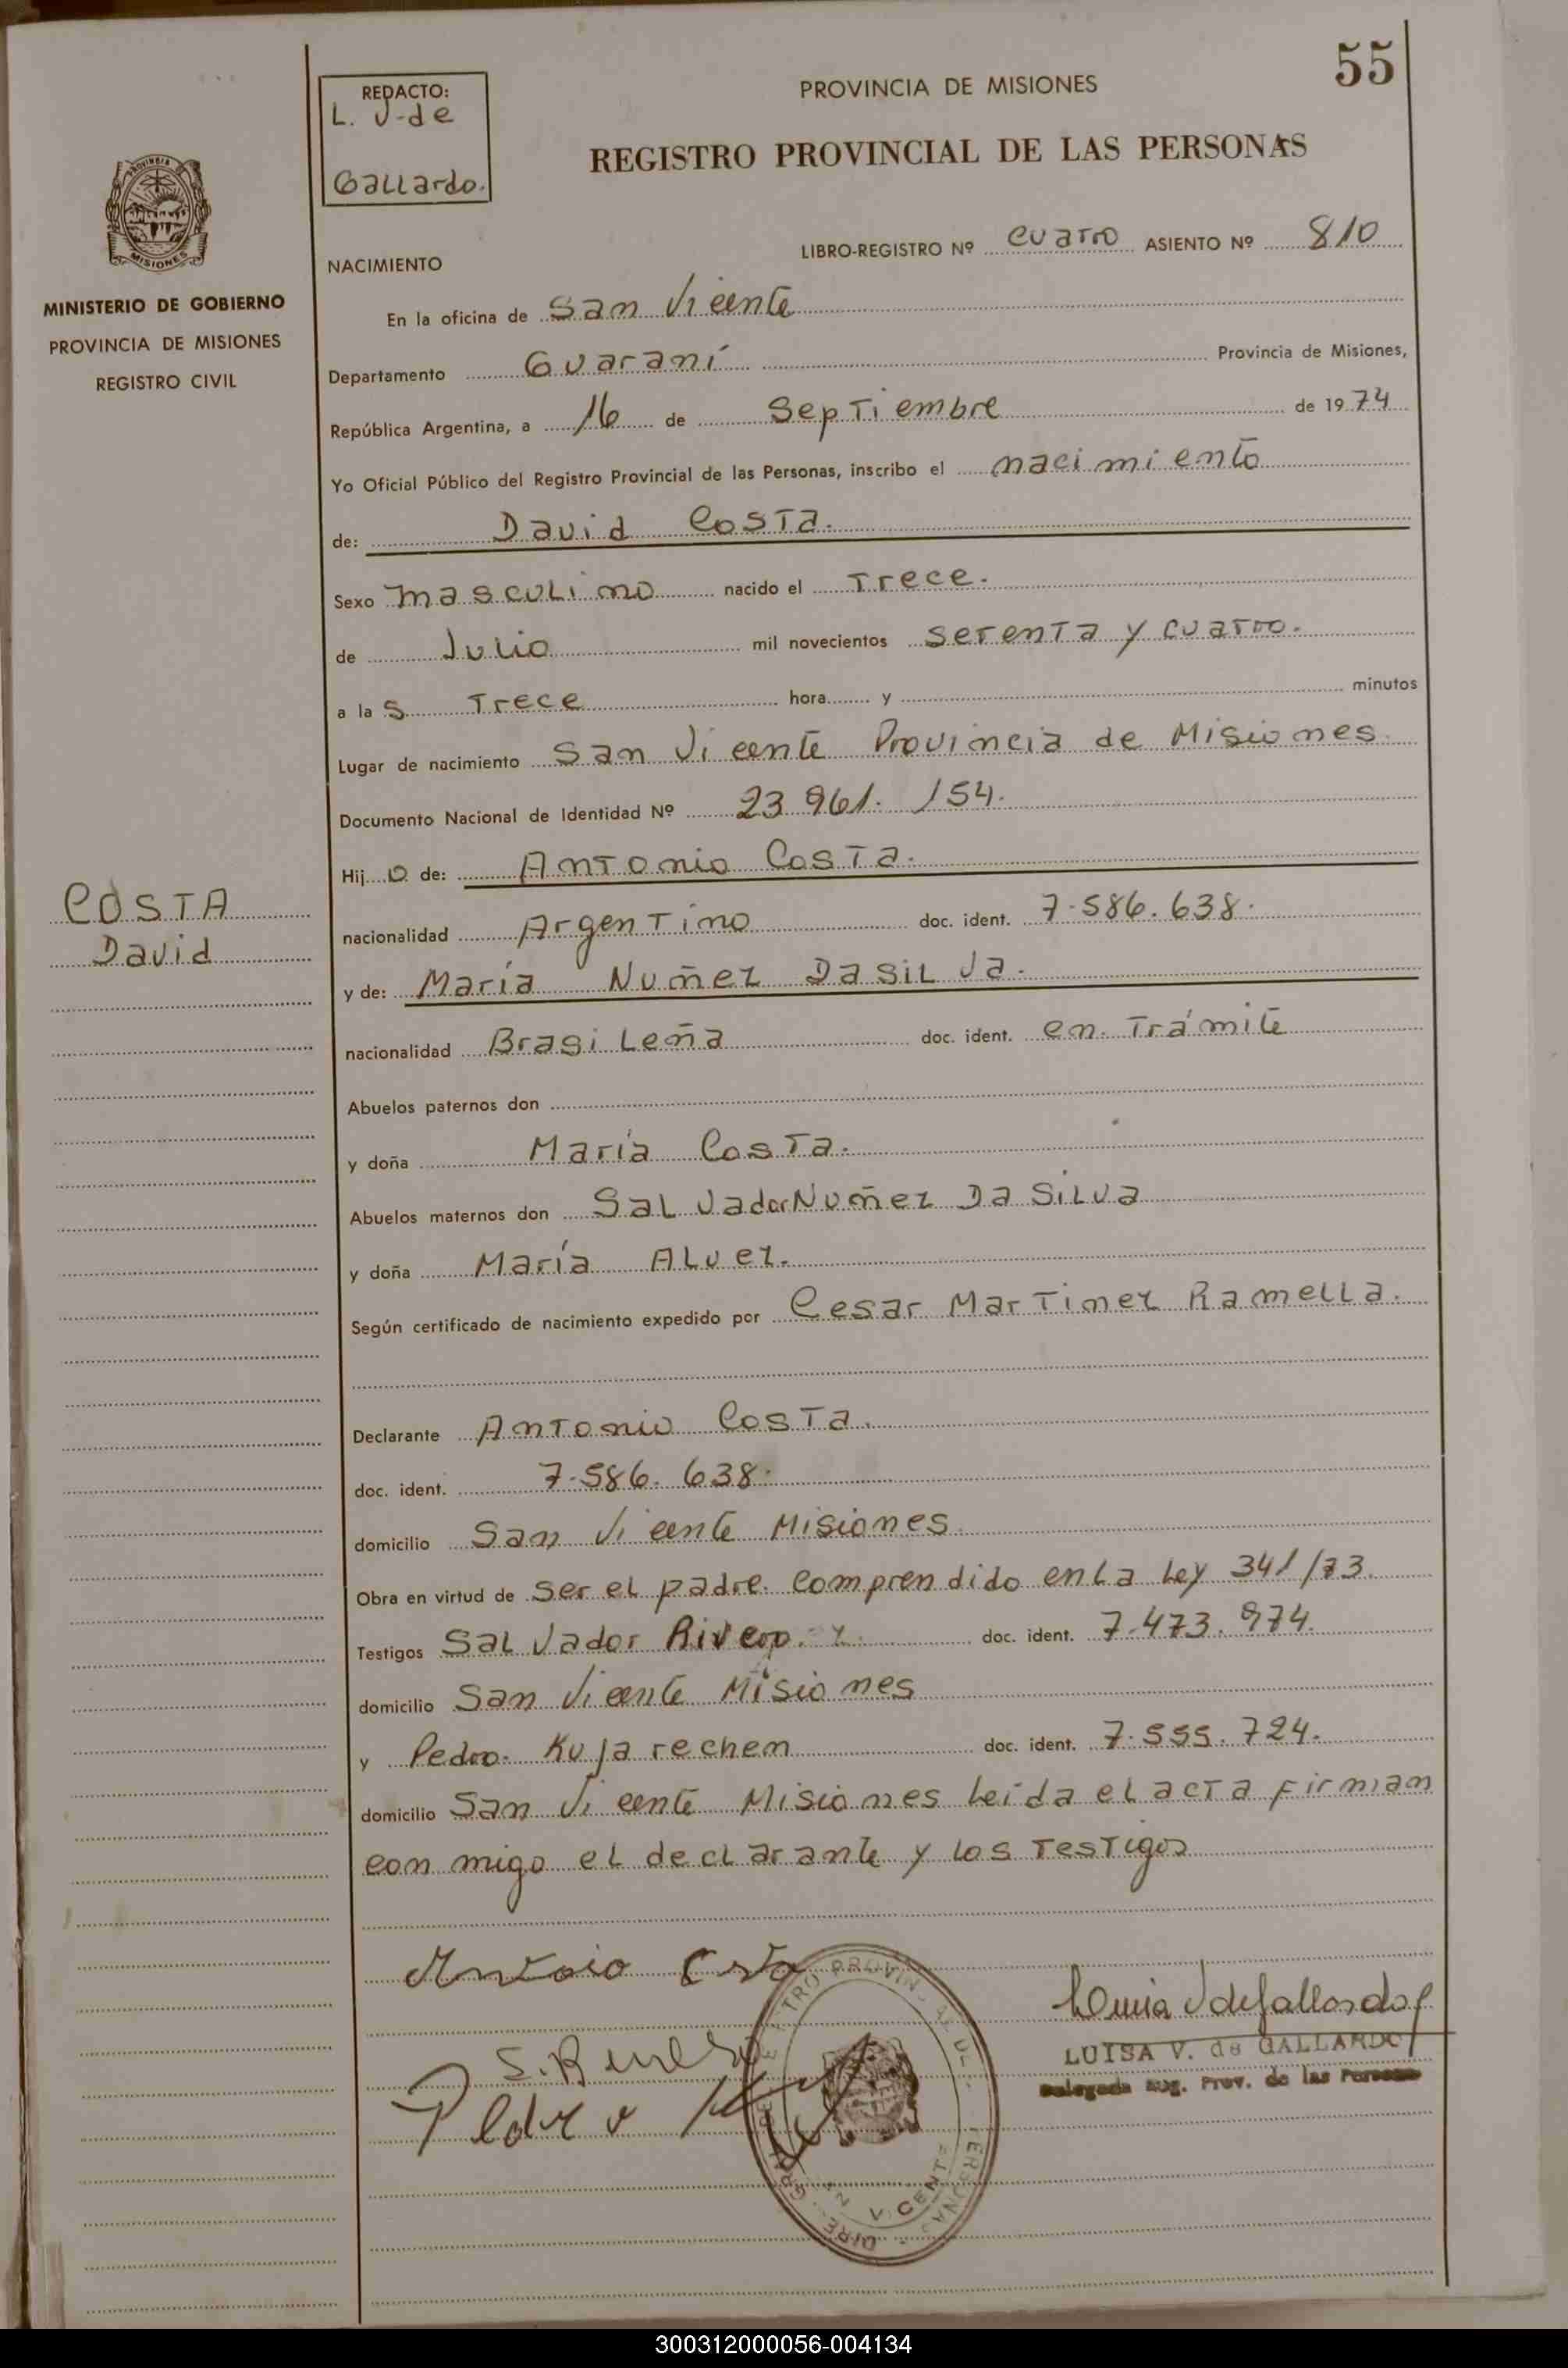 55
REDACTO:
L. V. de
Gallardo.
PROVINCIA DE MISIONES
REGISTRO PROVINCIAL DE LAS PERSONAS
PROVINCIA
MISIONES
MINISTERIO DE GOBIERNO
PROVINCIA DE MISIONES
REGISTRO CIVIL
LIBRO-REGISTRO Nº cuatro ASIENTO Nº 810
NACIMIENTO
En la oficina de San Vicente
Departamento Guaraní Provincia de Misiones,
República Argentina, a 16 de Septiembre de 1974
Yo Oficial Público del Registro Provincial de las Personas, inscribo el nacimiento
de: David Costa.
Sexo masculino nacido el Trece.
de Julio mil novecientos setenta y cuatro.
a las Trece hora y minutos
Lugar de nacimiento San Vicente Provincia de Misiones.
Documento Nacional de Identidad Nº 23 961. 154.
Hijo de: Antonio Costa.
COSTA
David
nacionalidad Argentino doc. ident. 7.586.638.
y de: María Nuñez Dasilva.
nacionalidad Brasileña doc. ident. en Trámite
Abuelos paternos don
y doña María Costa.
Abuelos maternos don Salvador Nuñez Da Silva
y doña María Alvez.
Según certificado de nacimiento expedido por Cesar Martinez Ramella.
Declarante Antonio Costa.
doc. ident. 7.586.638.
domicilio San Vicente Misiones
Obra en virtud de ser el padre. Comprendido en la Ley 341/73.
Testigos Salvador Rivero. doc. ident. 7.473.974.
domicilio San Vicente Misiones
y Pedro Kujarechen doc. ident. 7.555.724.
domicilio San Vicente Misiones Leída el acta firman
con migo el declarante y los Testigos
Antonio Costa
S. Rivero
Pedro
LUISA V. de GALLARDO
Delegada Reg. Prov. de las Personas
300312000056-004134